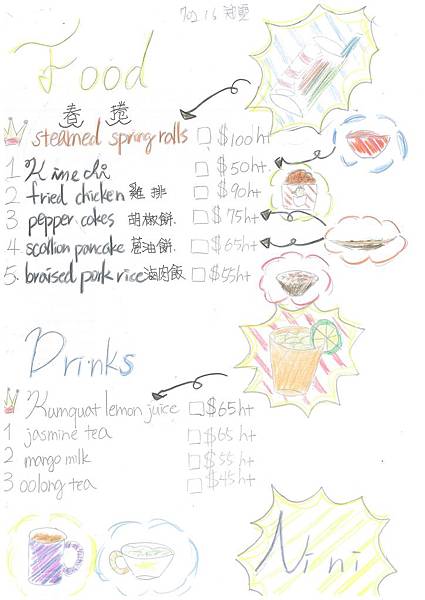 702 16
Food
春捲
steamed spring rolls □ $100 ht
1 Kimchi □ $50 ht
2 fried chicken 雞排 □ $90 ht
3 pepper cakes 胡椒餅 □ $75 ht
4. scallion pancake 蔥油餅 □ $65 ht
5. braised pork rice 滷肉飯 □ $55 ht
Drinks
Kumquat lemon juice □ $65 ht
1 jasmine tea □ $65 ht
2 mango milk □ $55 ht
3 oolong tea □ $45 ht
Nini